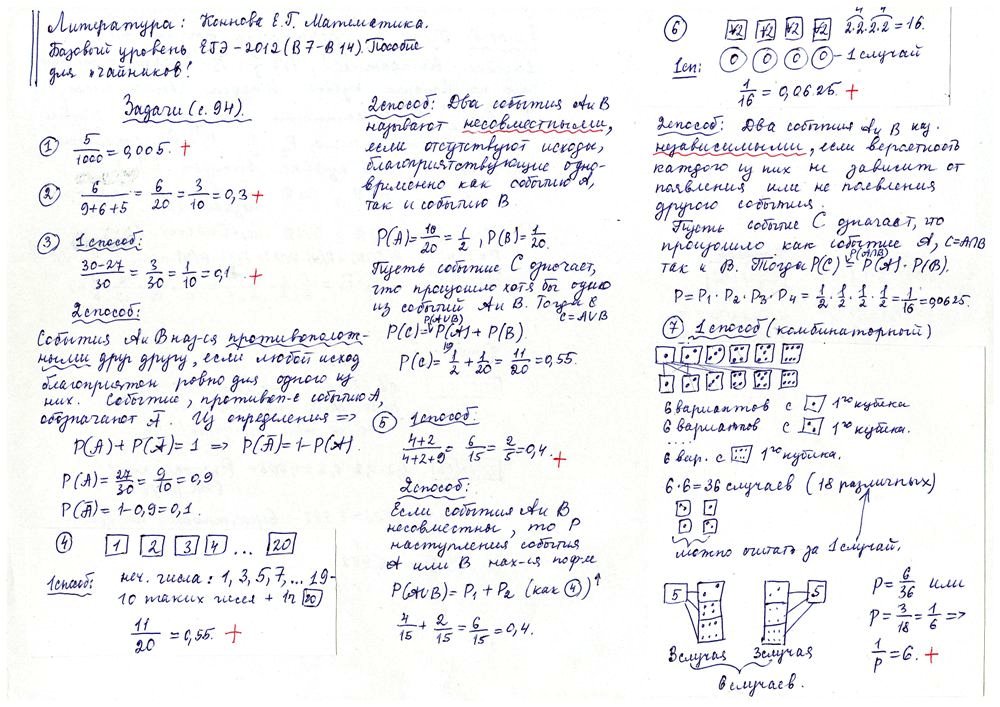 Литература: Коннова Е.Г. Математика.
Базовый уровень ЕГЭ-2012 (В7-В14). Пособие
для "чайников!
Задачи (с. 94).
① 5/1000 = 0,005. +
② 6/(9+6+5) = 6/20 = 3/10 = 0,3 +
③ 1 способ:
(30-27)/30 = 3/30 = 1/10 = 0,1. +
2 способ:
События А и В наз-ся противополож-
ными друг другу, если любой исход
благоприятен ровно для одного из
них. Событие, противоп-е событию А,
обозначают Ā. Из определения =>
P(A) + P(Ā) = 1 => P(Ā) = 1-P(A).
P(A) = 27/30 = 9/10 = 0,9
P(Ā) = 1-0,9 = 0,1.
④ 1 2 3 4 ... 20
1 способ: неч. числа: 1, 3, 5, 7, ... 19-
10 таких чисел + 1 20
11/20 = 0,55. +
2 способ: Два события А и В
называют несовместными,
если отсутствуют исходы,
благоприятствующие одно-
временно как событию А,
так и событию В
P(A) = 10/20 = 1/2, P(B) = 1/20.
Пусть событие С означает,
что произошло хотя бы одно
из событий А и В. Тогда
C = A∪B
P(A∪B)
P(C) = P(A) + P(B).
P(C) = 1/2 + 1/20 = 11/20 = 0,55.
⑤ 1 способ:
(4+2)/(4+2+9) = 6/15 = 2/5 = 0,4. +
2 способ:
Если события А и В
несовместны, то P
наступления события
А или В нах-ся по ф-ле
P(A∪B) = P₁ + P₂ (как ④)↑
4/15 + 2/15 = 6/15 = 0,4.
⑥ 2·2·2·2 = 16.
1 сп: 0 0 0 0 - 1 случай
1/16 = 0,0625. +
2 способ: Два события А и В наз.
независимыми, если вероятность
каждого из них не зависит от
появления или не появления
другого события.
Пусть событие С означает, что
произошло как событие А, C=A∩B
P(A∩B)
так и В. Тогда P(C) = P(A)·P(B).
P = P₁·P₂·P₃·P₄ = 1/2·1/2·1/2·1/2 = 1/16 = 0,0625.
⑦ 1 способ (комбинаторный)
6 вариантов с 1го кубика
6 вариантов с 1го кубика.
.....
6 вар. с 1го кубика.
6·6 = 36 случаев (18 различных)
можно считать за 1 случай.
5 5
3 случая 3 случая
6 случаев.
P = 6/36 или
P = 3/18 = 1/6 =>
1/P = 6. +